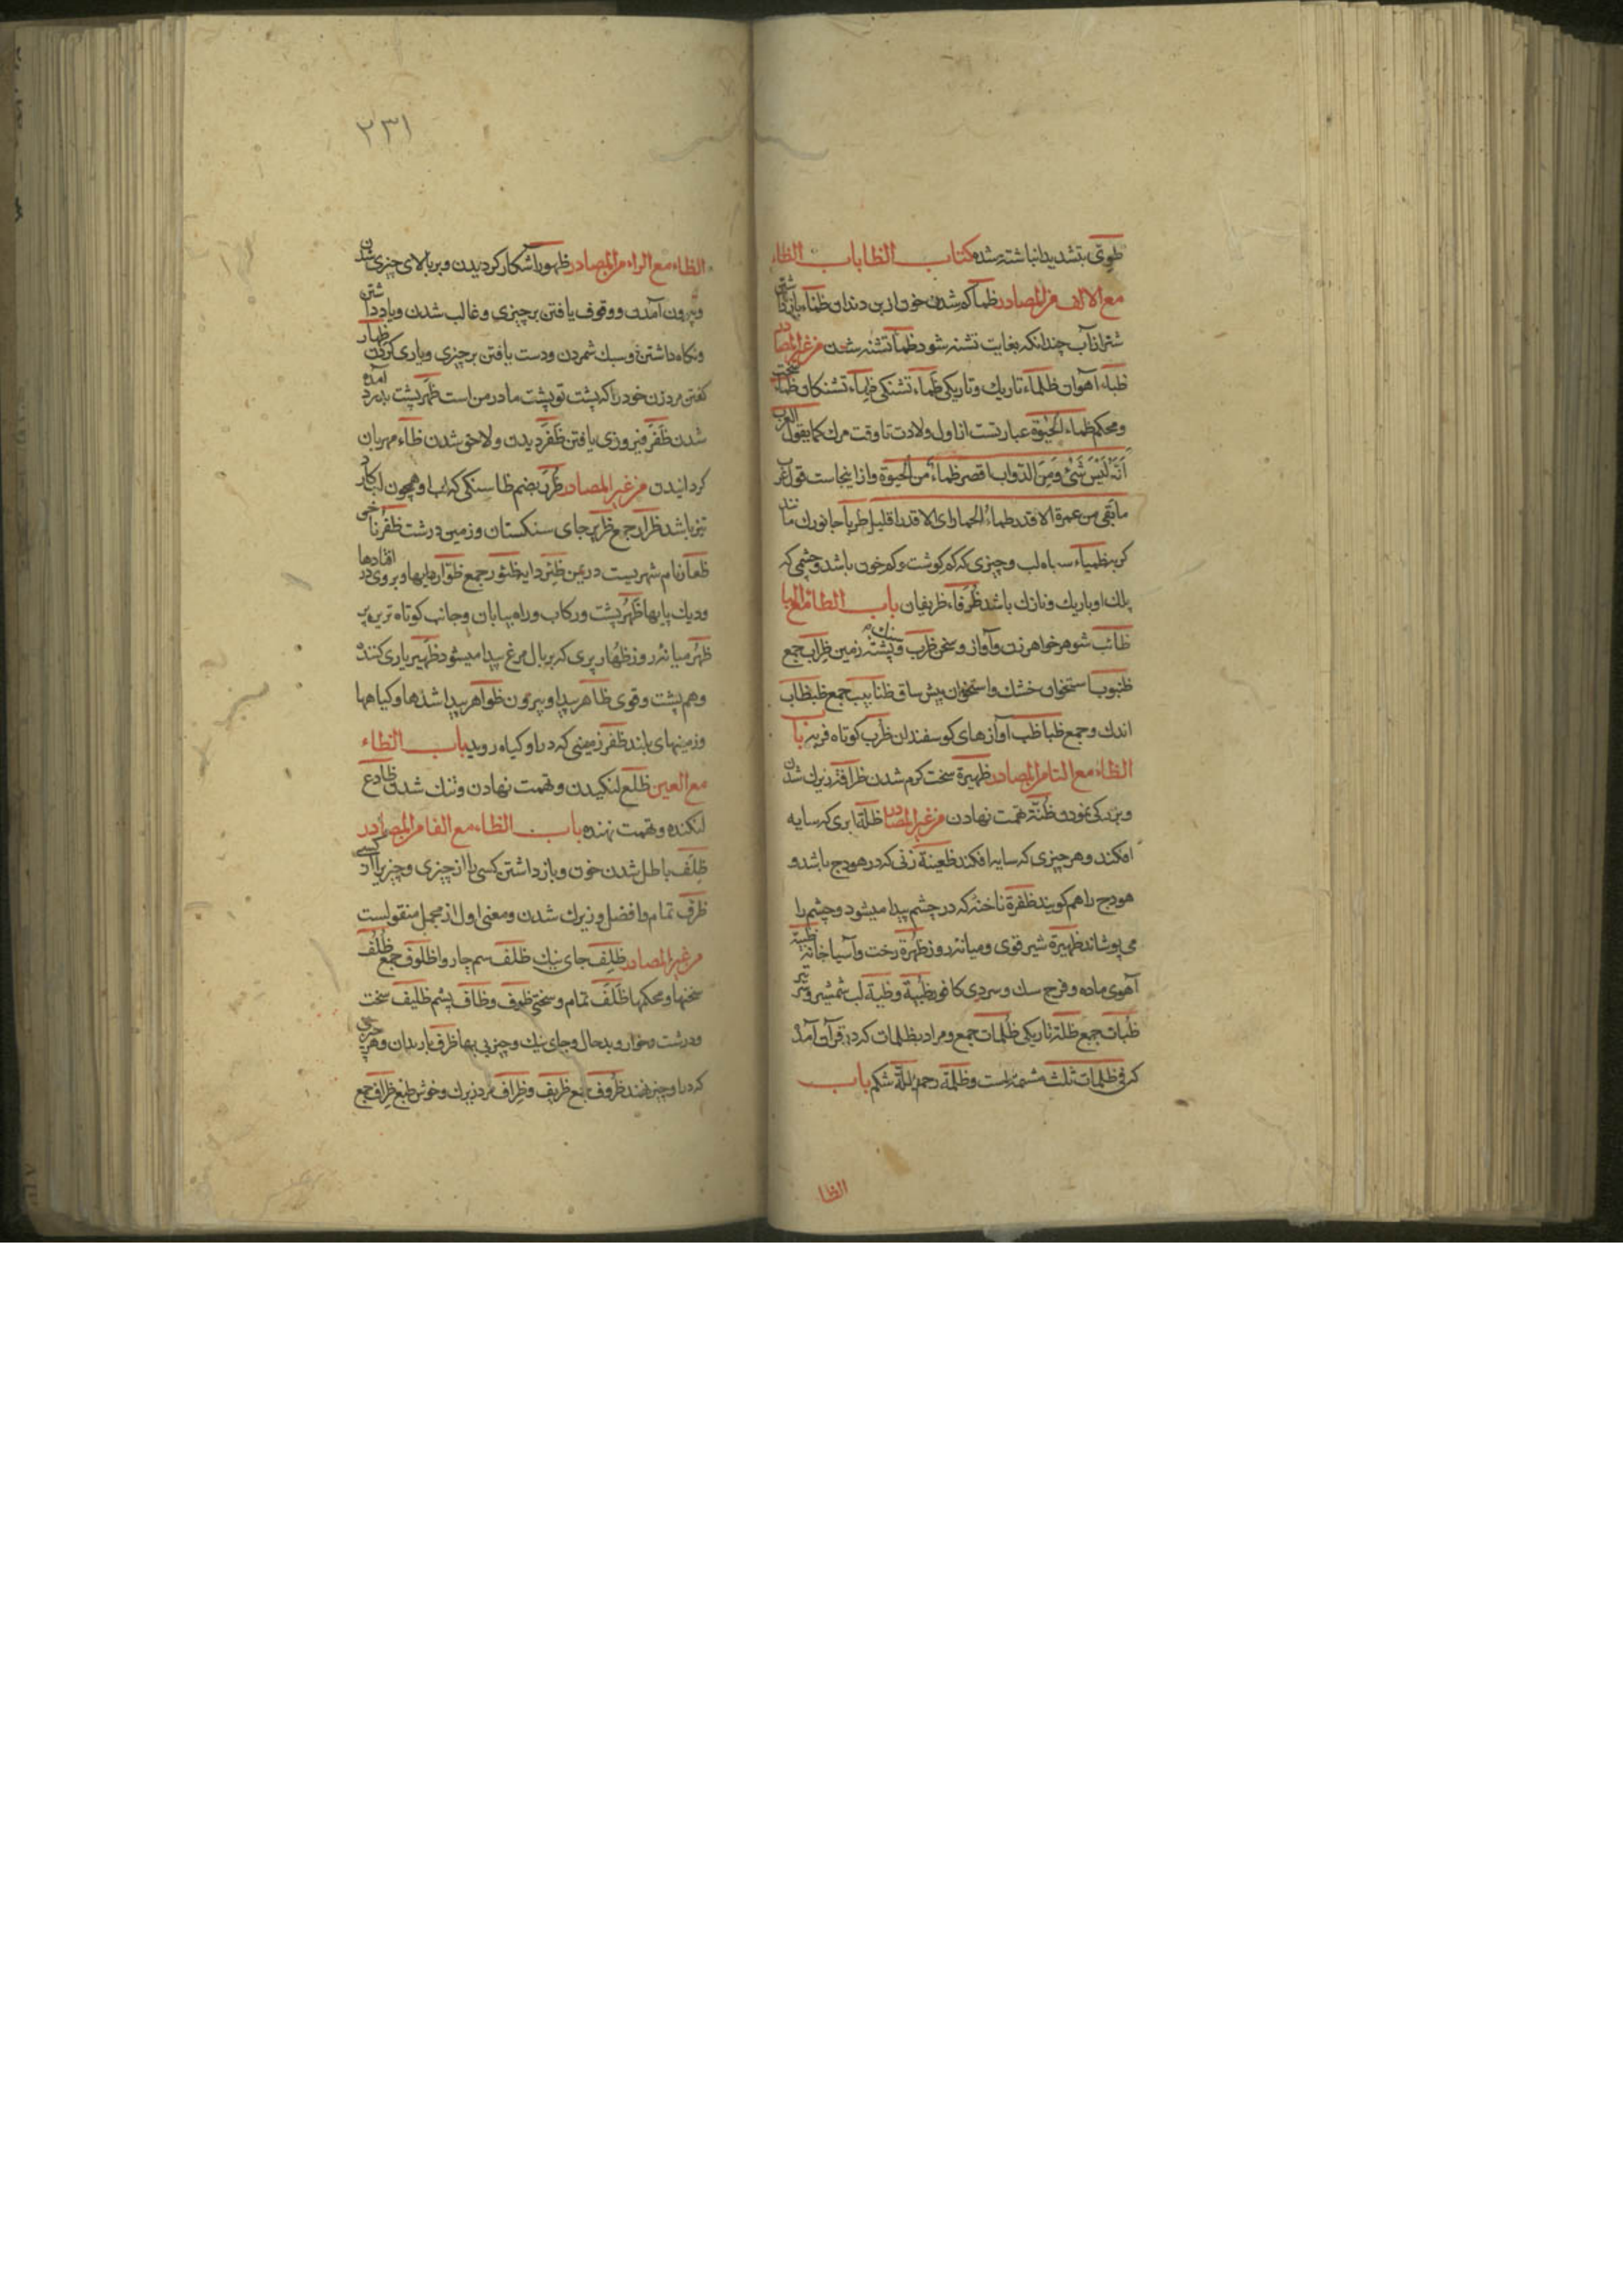 طوی بتشدید انباشته شده کتاب الظا باب الظاء
مع الالف من المصادر ظما کم شدن خون از بن دندان ظماء بازداشتن
شتر از آب چندانکه بغایت تشنه شود ظمأ تشنه شدن من غیر المصادر
ظباء آهوان ظلماء تاریک و تاریکی ظماء تشنکی ظماء تشنکان ظماء سخت
و محکم ظماء الحیوة عبارتست از اول ولادت تا وقت مرک کما یقول العرب
انه لیس شئ من الدواب اقصر ظماء من الحیوة و از اینجاست قول عرب
ما بقی من عمرة الا قدر ظماء الحمار ای الا قدرا قلیلا ظربا جانورک مانند
کربه ظمیاء سیاه لب و چیزی که کم کوشت و کم خون باشد و چشمی که
پلک او باریک و نازک باشد ظرفاء ظریفان باب الظاء مع البا
ظائب شوهر خواهر زن و آواز و سخن ظرب و پشته زمین ظراب جمع
ظنبوب استخوان خشک و استخوان پیش ساق ظنابیب جمع ظبظاب
اندک و جمع ظباظب آوازهای کوسفندان ظرب کوتاه فربه باب
الظاء مع التا من المصادر ظهیرة سخت کرم شدن ظرافة زیرک شدن
و بزرکی نمودن ظنة تهمت نهادن من غیر المصادر ظلة ابری که سایه
افکند و هر چیزی که سایه افکند ظعینة زنی که در هودج باشد و
هودج را هم کویند ظفرة ناخنه که در چشم پیدا میشود و چشم را
می پوشاند ظهیرة شیر قوی و میانه روز ظهرة رخت و آسیا خانه ظبیة
آهوی ماده و فرج سک و سردی کافور ظبیة و ظبة لب شمشیر و تیر
ظبات جمع ظلمة تاریکی ظلمات جمع و مراد بظلمات که در قرآن آمده
که فی ظلمات ثلث مشیمه است و ظلمة رحم ظلمة شکم باب
الظا
۲۳۱
الظاء مع الراء من المصادر ظهور آشکار کردیدن و بر بالای چیزی شدن
و بیرون آمدن و وقوف یافتن بر چیزی و غالب شدن و یاد داشتن
و نکاه داشتن و سبک شمردن و دست یافتن بر چیزی و یاری کردن ظهار
کفتن مرد زن خود را که پشت تو پشت مادر من است ظهر پشت بدرد آمده
شدن ظفر فیروزی یافتن ظفر دیدن و لاحق شدن ظاء مهربان
کردانیدن من غیر المصادر ظرر بضم ظا سنکی که لب او همچون لب کارد
تیز باشد ظرار جمع ظریر جای سنکستان و زمین درشت ظفر ناخن
ظفار نام شهریست در یمن ظئر دایه ظئور جمع ظوار دایها و بروی در افتادها
و دیک پایها ظهر پشت و رکاب و راه بیابان و جانب کوتاه ترین پر
ظهر میانه روز ظهار پری که بر بال مرغ پیدا میشود ظهیر یاری کننده
و هم پشت و قوی ظاهر پیدا و بیرون ظواهر پیدا شدها و کیاهها
و زمینهای بلند ظفر زمینی که در او کیاه روید باب الظاء
مع العین ظلع لنکیدن و تهمت نهادن و تنک شدن ظالع
لنکنده و تهمت نهنده باب الظاء مع الفا من المصادر
ظلف باطل شدن خون و باز داشتن کسی را از چیزی و چیزی را از کسی
ظرف تمام و افضل و زیرک شدن و معنی اول از مجمل منقولست
من غیر المصادر ظلف جای نیک ظلف سم چاروا ظلوف جمع ظلف
سختها و محکمها ظلف تمام و سختی ظوف و ظاف پشم ظلیف سخت
و درشت و خوار و بدحال و جای نیک و چیز بی بها ظرف باردان و هر چیزی
که در او چیزی نهند ظروف جمع ظریف و ظراف مرد زیرک و خوش طبع ظراف جمع